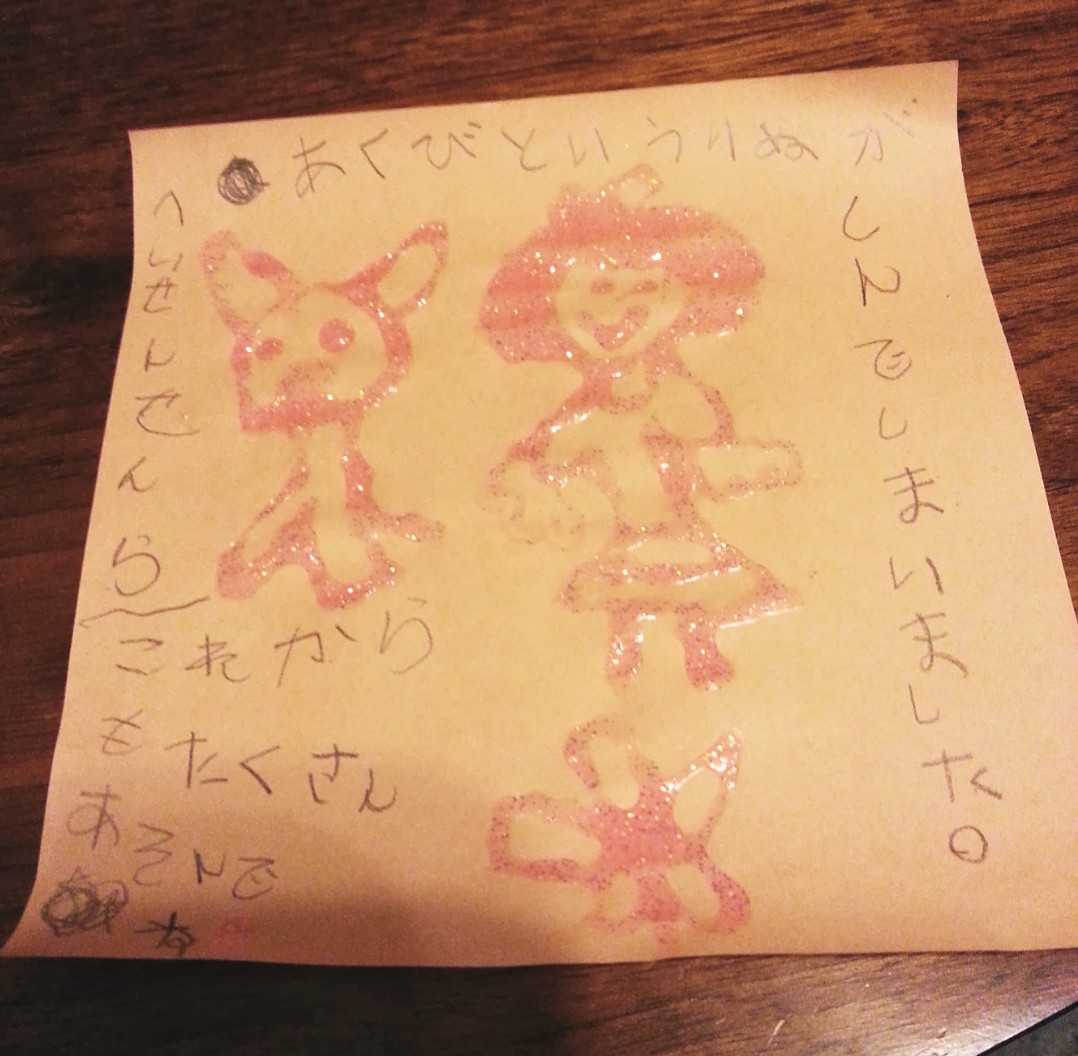 あくびといういぬが
しんでしまいました。
へいせんせんら
これから
もたくさん
あそんで
ね